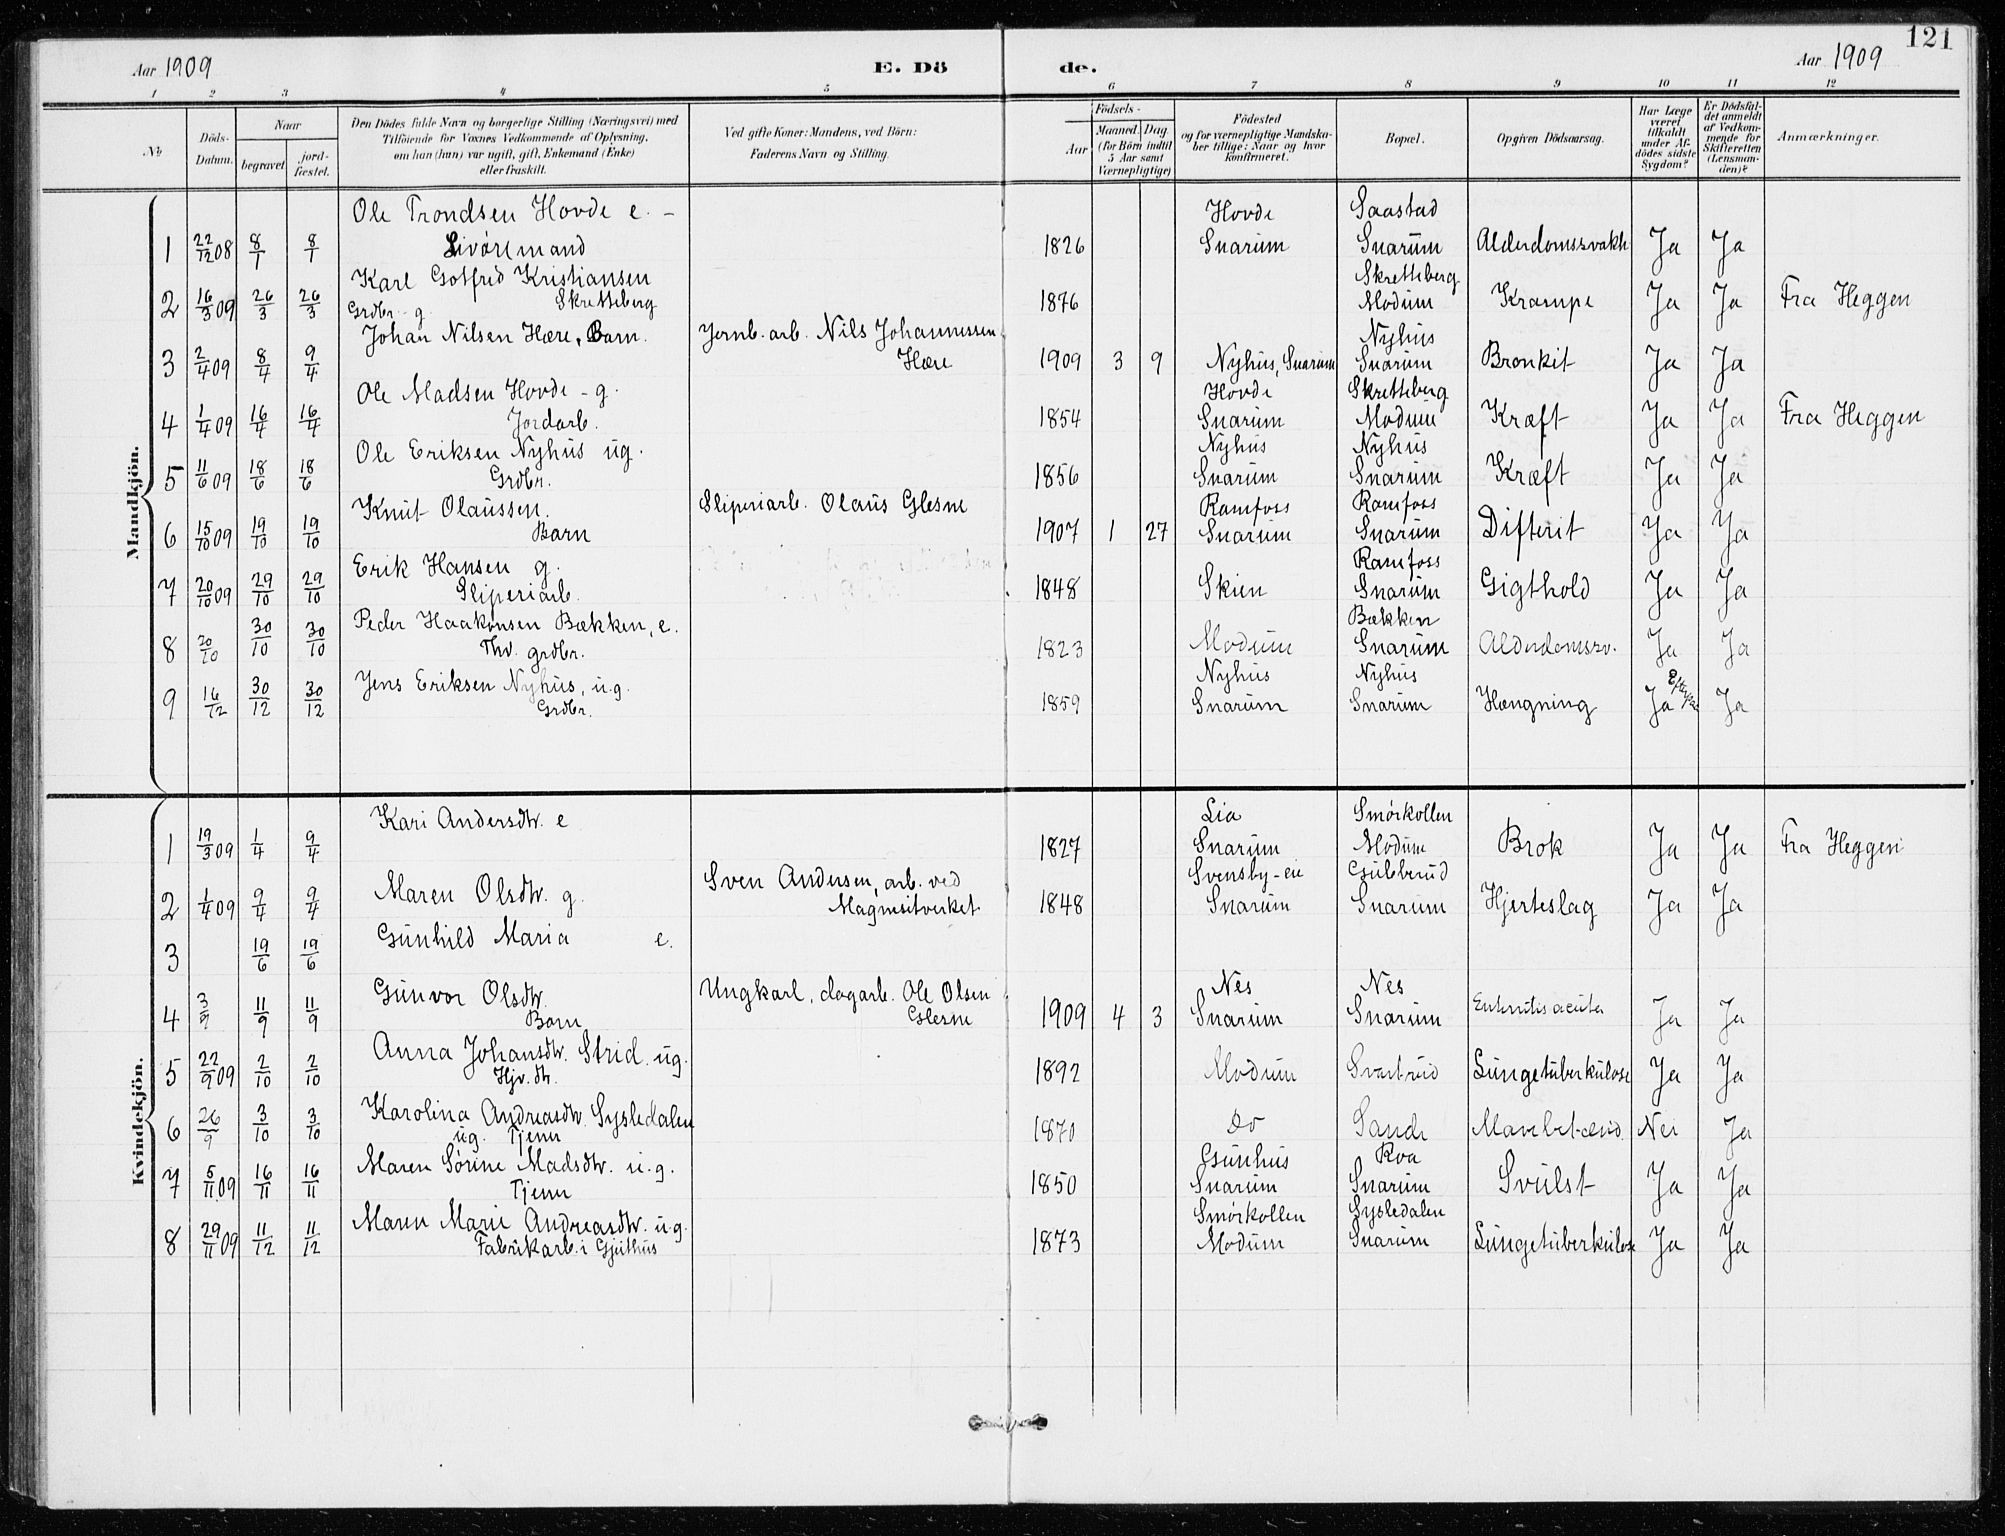 121
Aar 1909 E. Dö de. Aar 1909
1 2 3 4 5 6 7 8 9 10 11 12
No
Döds-Datum.
Naar
begravet
jord-fæstet.
Den Dödes fulde Navn og borgerlige Stilling (Næringsvei) med
Tilföiende for Voxnes Vedkommende af Oplysning,
om han (hun) var ugift, gift, Enkemand (Enke)
eller fraskilt.
Ved gifte Koner: Mandens, ved Börn:
Faderens Navn og Stilling.
Födsels-
Aar
Maaned. Dag
(for Börn indtil
5 Aar samt
Værnepligtige)
Födested
og for værnepligtige Mandska-
ber tillige: Naar og hvor
konfirmeret.
Bopæl.
Opgiven Dödsaarsag.
Har Læge
været
tilkaldt
under Af-
dödes sidste
Sygdom?
Er Dödsfal-
det anmeldt
af Vedkom-
mende for
Skifteretten
(Lensman-
den)?
Anmærkninger.
Mandkjön.
Ole Trondsen Hovde e. - Hovde Saastad
1 22/12 08 8/1 8/1 Livøremand 1826 Snarum Snarum Alderdomssvakh Ja Ja
Karl Gotfred Kristiansen Skretteberg
2 16/3 09 26/3 26/3 Grdbr. g. Skretteberg 1876 Modum Krampe Ja Ja Fra Heggen
Johan Nilsen Hære, Barn. Jernb. arb. Nils Johannessen Nyhus
3 2/4 09 8/4 9/4 Hære 1909 3 9 Nyhus, Snarum Snarum Bronkit Ja Ja
Ole Madsen Hovde - g. Hovde Skretteberg
4 1/4 09 16/4 16/4 Jordarb. 1854 Snarum Modum Kræft Ja Ja Fra Heggen
Ole Eriksen Nyhus ug. Nyhus Nyhus
5 11/6 09 18/6 18/6 Grdbr. 1856 Snarum Snarum Kræft Ja Ja
Knut Olaussen. Sliperiarb. Olaus Glesne Ramfoss Ramfoss
6 15/10 09 19/10 19/10 Barn 1907 1 27 Snarum Snarum Difterit Ja Ja
Erik Hansen g. Ramfoss
7 20/10 09 29/10 29/10 Sliperiarb. 1848 Skien Snarum Gigthold Ja Ja
Peder Haakonsen Bækken, e. Bækken
8 20/10 30/10 30/10 Thv. grdbr. 1823 Modum Snarum Alderdomssv. Ja Ja
Jens Eriksen Nyhus, u.g. Nyhus Nyhus
9 16/12 30/12 30/12 Grdbr. 1859 Snarum Snarum Hængning Ja Ja
Kvindekjön.
Kari Andersdtr. e Lia Smørkollen
1 19/3 09 1/4 9/4 1827 Snarum Modum Brok Ja Ja Fra Heggen
Maren Olsdtr. g. Sven Andersen, arb. ved Svensby-eie Gubberud
2 1/4 09 9/4 9/4 Magnesitverket 1848 Snarum Snarum Hjerteslag Ja Ja
Gunhild Maria e.
3 19/6 19/6
Gunvor Olsdtr. Ungkarl, dagarb. Ole Olsen Nes Nes
4 3/9 11/9 11/9 Barn Glesne 1909 4 3 Snarum Snarum Enteritis acuta Ja Ja
Anna Johansdtr. Strid. ug.
5 22/9 09 2/10 2/10 Hjv. dtr. 1892 Modum Svartrud Lungetuberkulose Ja Ja
Karolina Andreasdtr. Sysledalen
6 26/9 3/10 3/10 ug. Tjener 1870 Do Sande Mavebet-ænd. Nei Ja
Maren Sørine Madsdtr. u.g. Gunhus Roa
7 5/11 09 16/11 16/11 Tjener 1850 Snarum Snarum Svulst Ja Ja
Maren Marie Andreasdtr. u.g. Smørkollen Sysledalen
8 29/11 09 11/12 11/12 Fabrikarb. i Gjuthus 1873 Modum Snarum Lungetuberkulose Ja Ja